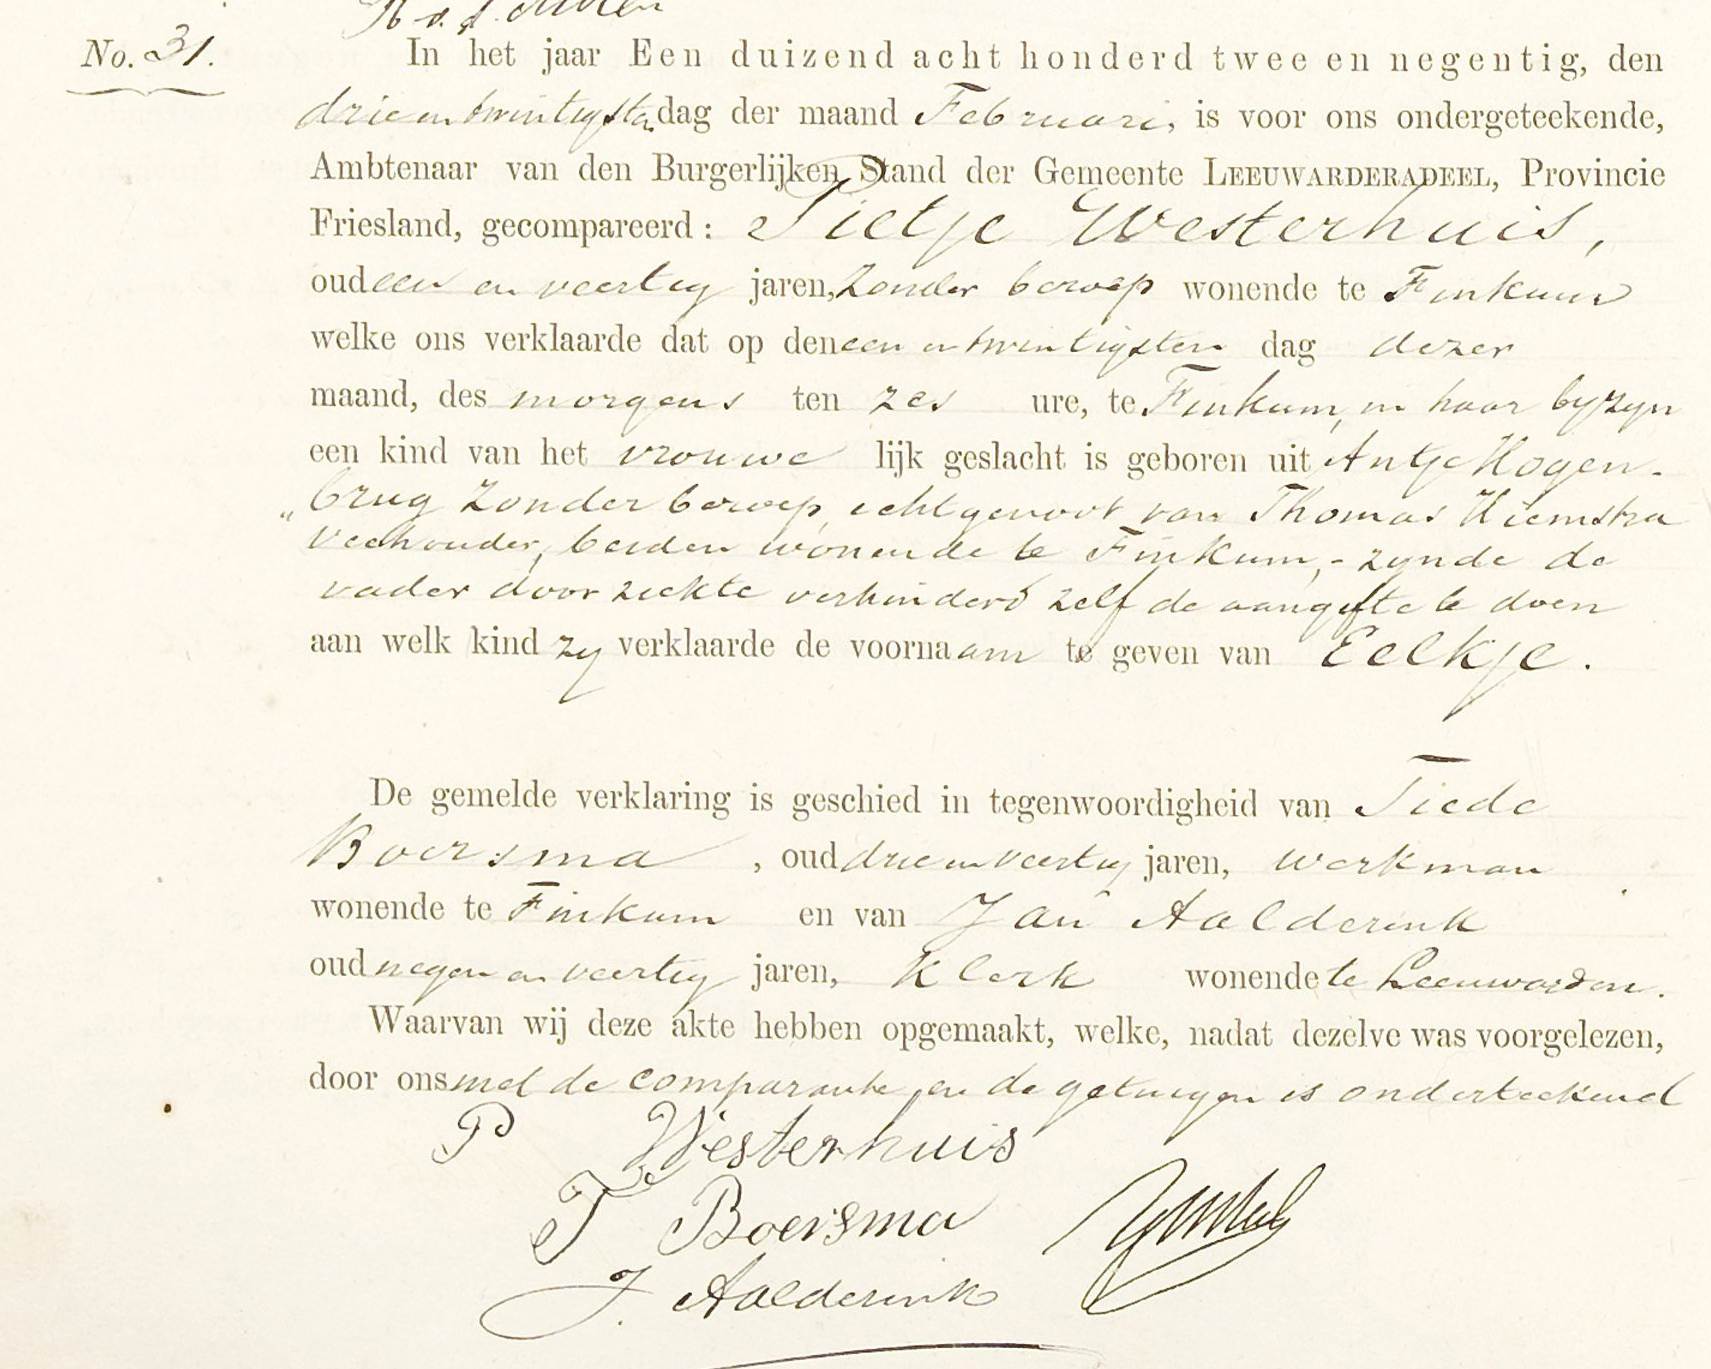 No. 31.
In het jaar Een duizend acht honderd twee en negentig, den
drie en twintigsten dag der maand Februari, is voor ons ondergeteekende,
Ambtenaar van den Burgerlijken Stand der Gemeente LEEUWARDERADEEL, Provincie
Friesland, gecompareerd: Pietje Westerhuis,
oud een en veertig jaren, zonder beroep wonende te Finkum
welke ons verklaarde dat op den een en twintigsten dag dezer
maand, des morgens ten zes ure, te Finkum, in haar byzyn
een kind van het vrouwelijk geslacht is geboren uit Antje Hogen-
"brug zonder beroep, echtgenoot van Thomas Hiemstra
veehouder, beiden wonende te Finkum, - zynde de
vader door ziekte verhinderd zelf de aangifte te doen
aan welk kind zy verklaarde de voornaam te geven van Eelkje.
De gemelde verklaring is geschied in tegenwoordigheid van Tiede
Boersma, oud drie en veertig jaren, werkman
wonende te Finkum en van Jan Aalderink
oud negen en veertig jaren, Klerk wonende te Leeuwarden.
Waarvan wij deze akte hebben opgemaakt, welke, nadat dezelve was voorgelezen,
door ons met de comparante en de getuigen is onderteekend
P Westerhuis
T Boersma
J. Aalderink